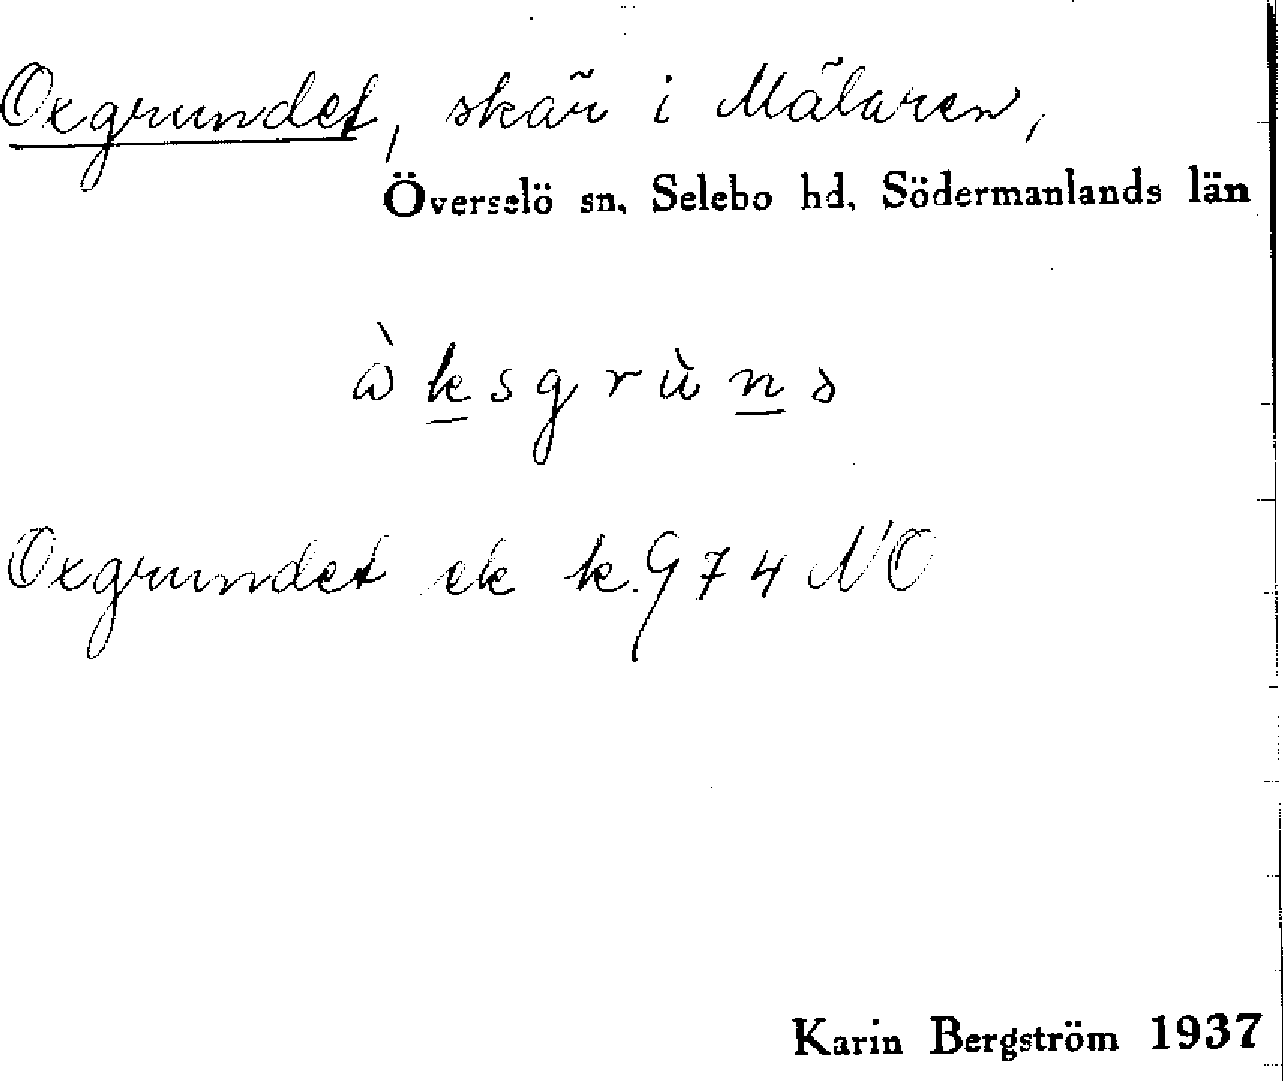 Oxgrundet, skär i Mälaren,
Överselö sn. Selebo hd. Södermanlands län
ὼksgrùnə
Oxgrundet ek k. 974 NO
Karin Bergström 1937